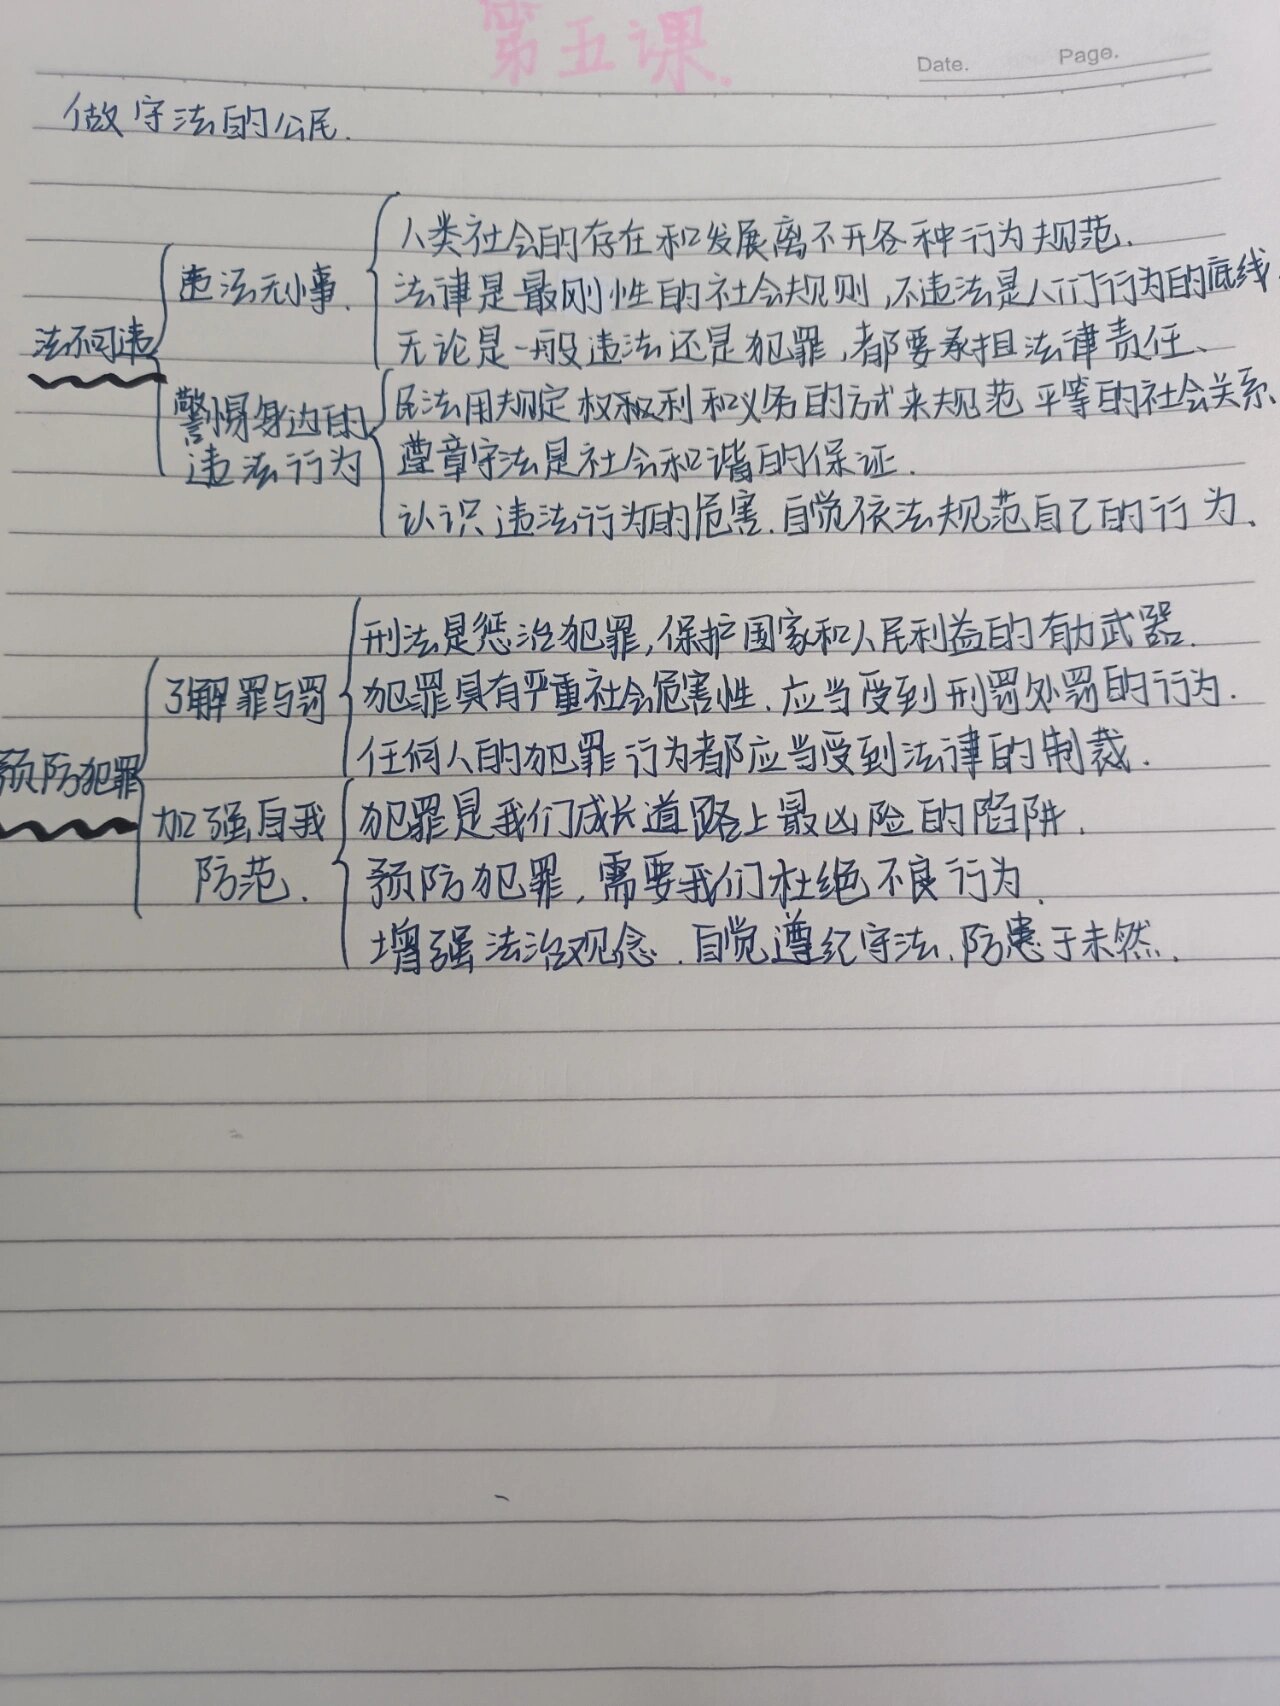 第五课.
Date. Page.
做守法的公民.
人类社会的存在和发展离不开各种行为规范.
违法无小事.
法律是最刚性的社会规则,不违法是人们行为的底线.
法不可违
无论是一般违法还是犯罪,都要承担法律责任、
警惕身边的
违法行为
民法用规定权利和义务的方式来规范平等的社会关系
遵章守法是社会和谐的保证.
认识违法行为的危害.自觉依法规范自己的行为、
刑法是惩治犯罪,保护国家和人民利益的有力武器.
了解罪与罚
犯罪具有严重社会危害性.应当受到刑罚处罚的行为.
预防犯罪
任何人的犯罪行为都应当受到法律的制裁.
加强自我
防范.
犯罪是我们成长道路上最凶险的陷阱.
预防犯罪,需要我们杜绝不良行为.
增强法治观念.自觉遵纪守法.防患于未然.